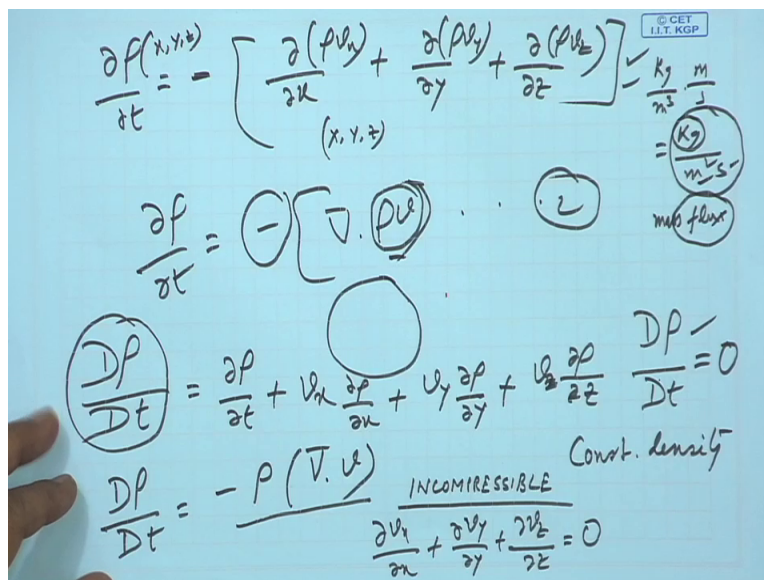 © CET
I.I.T. KGP
∂ρ(x,y,z)/∂t = - [ ∂(ρvx)/∂x + ∂(ρvy)/∂y + ∂(ρvz)/∂z ] (x,y,z)
= Kg/m³ · m/s
= Kg/m²s
mass flux
∂ρ/∂t = - [ ∇. ρv . . . 2
Dρ/Dt = ∂ρ/∂t + vx ∂ρ/∂x + vy ∂ρ/∂y + vz ∂ρ/∂z
Dρ/Dt = 0
Const. density
Dρ/Dt = - ρ (∇.v)
INCOMPRESSIBLE
∂vx/∂x + ∂vy/∂y + ∂vz/∂z = 0